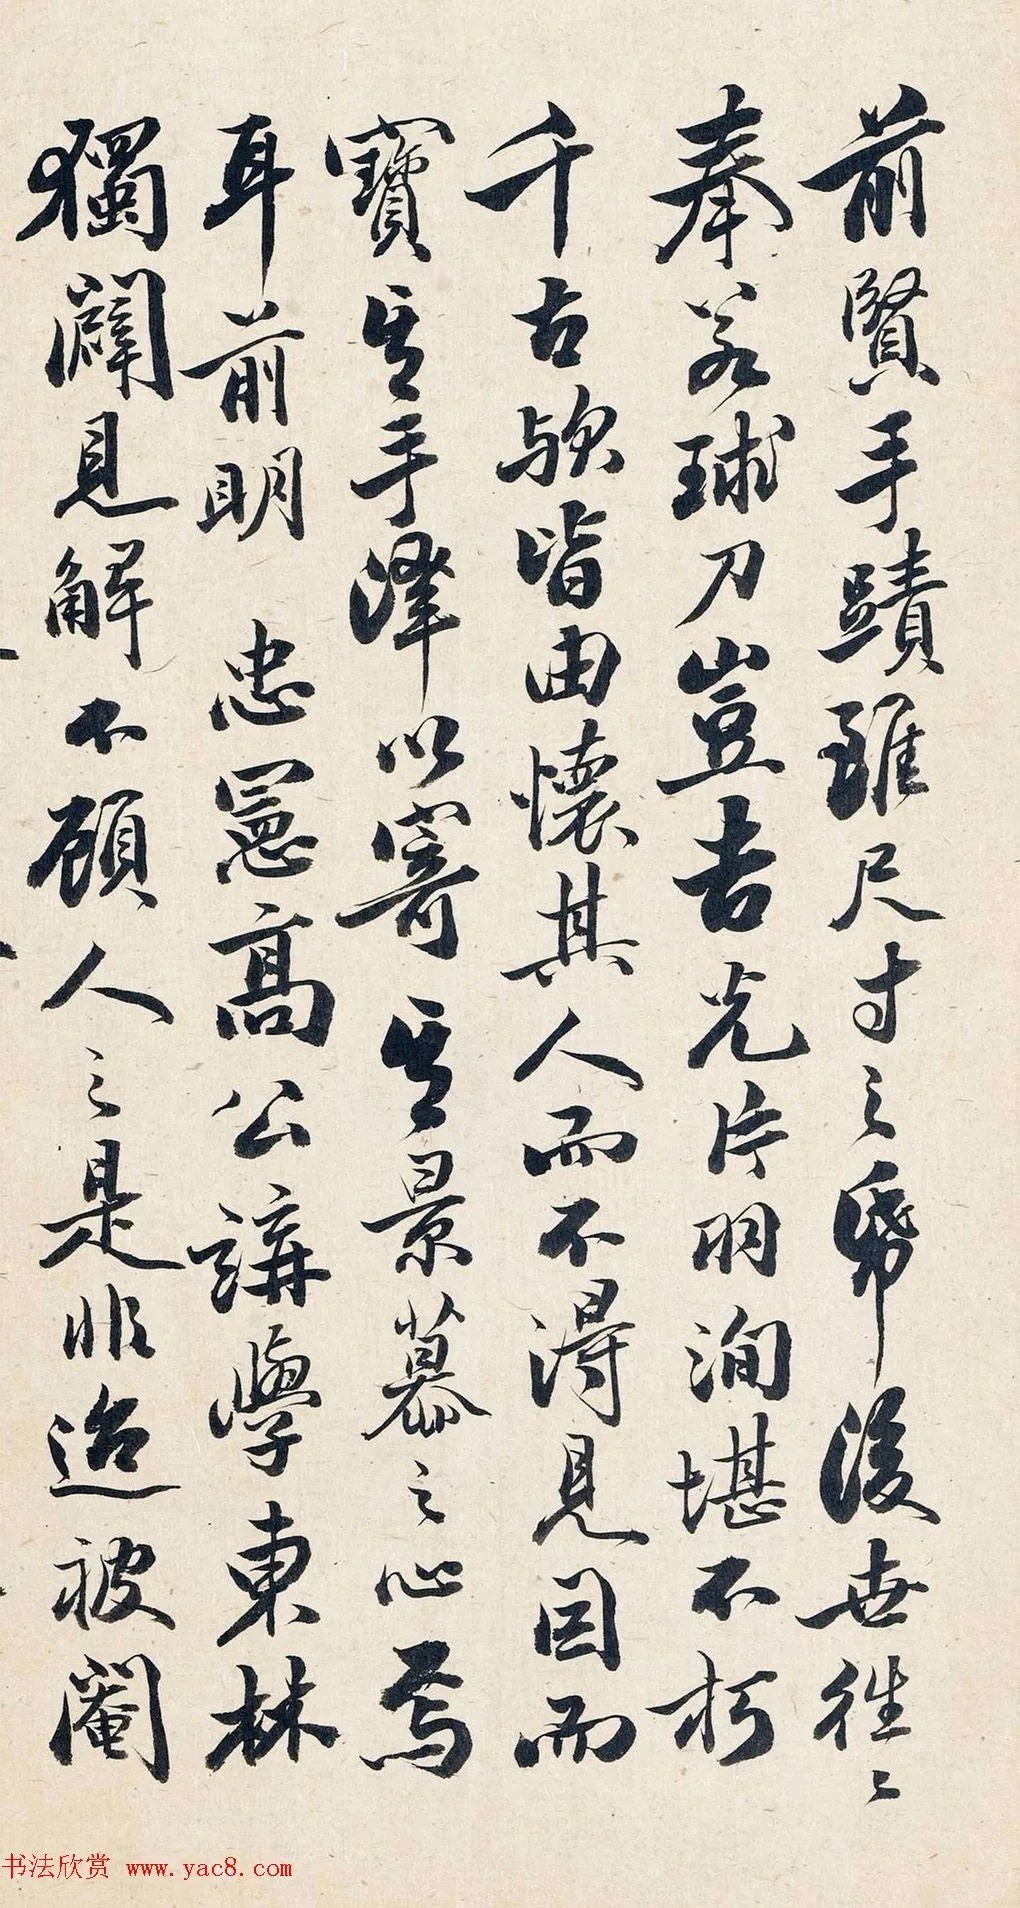 前賢手蹟雖尺寸之帋後世徃〻
奉若球刀豈吉光片羽洵堪不朽
千古欤皆由懷其人而不得見因而
寶其手澤以寄其景慕之心焉
耳前明 忠憲髙公講學東林
獨闢見解不顧人之是非迨被閹
书法欣赏 www.yac8.com